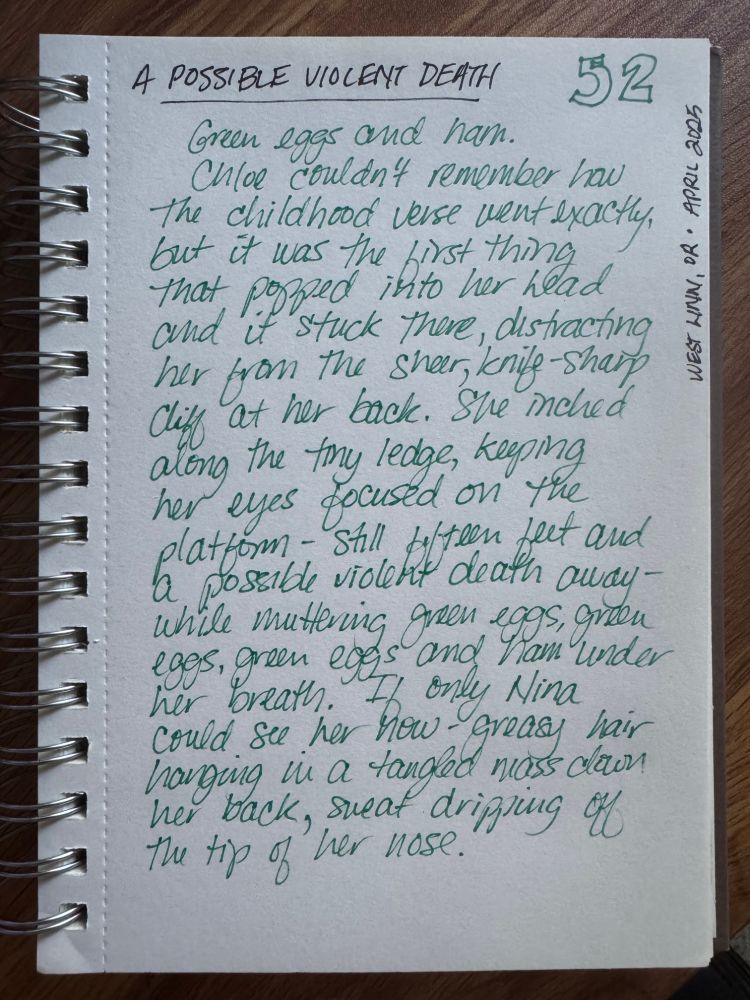 A POSSIBLE VIOLENT DEATH
52
Green eggs and ham.
Chloe couldn't remember how
the childhood verse went exactly,
but it was the first thing
that popped into her head
and it stuck there, distracting
her from the sheer, knife-sharp
cliff at her back. She inched
along the tiny ledge, keeping
her eyes focused on the
platform - still fifteen feet and
a possible violent death away -
while muttering green eggs, green
eggs, green eggs and ham under
her breath. If only Nina
could see her now - greasy hair
hanging in a tangled mass down
her back, sweat dripping off
the tip of her nose.
WEST LINN, OR • APRIL 2025